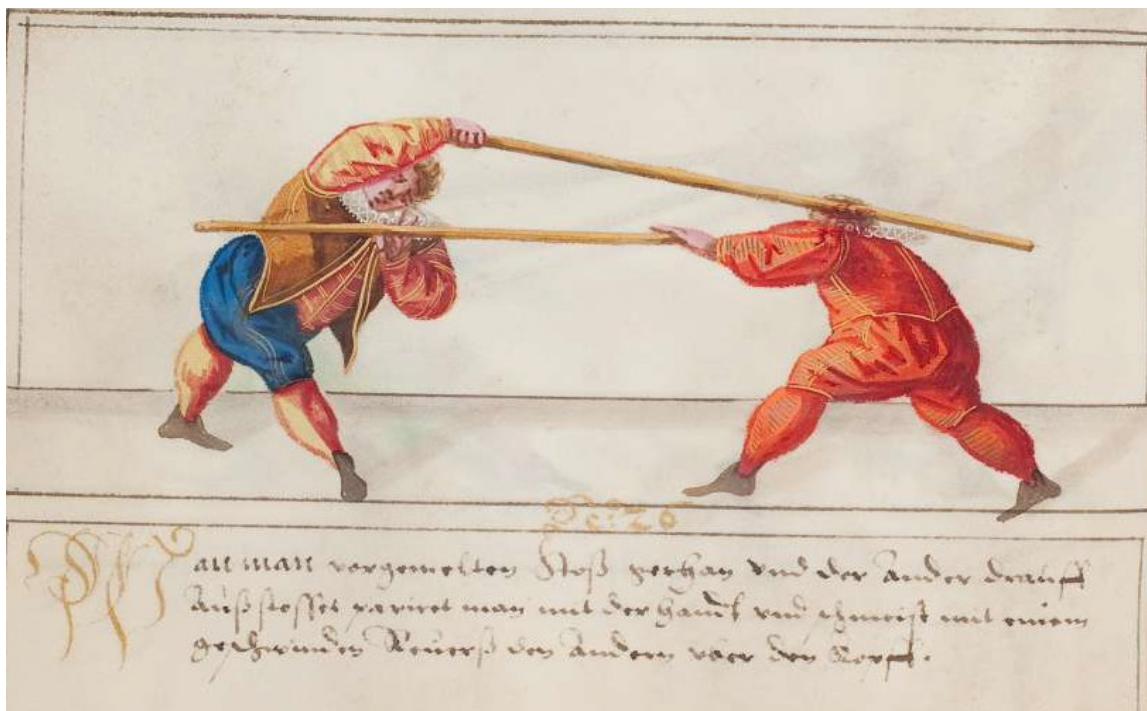 No: 26
Wan man vorgemelten Stoß gethan vnd der Ander drauff
Außstosset pariret man mit der handt vnd schmeist mit einem
geschwinden Reuerß den Andern vber den Kopff.